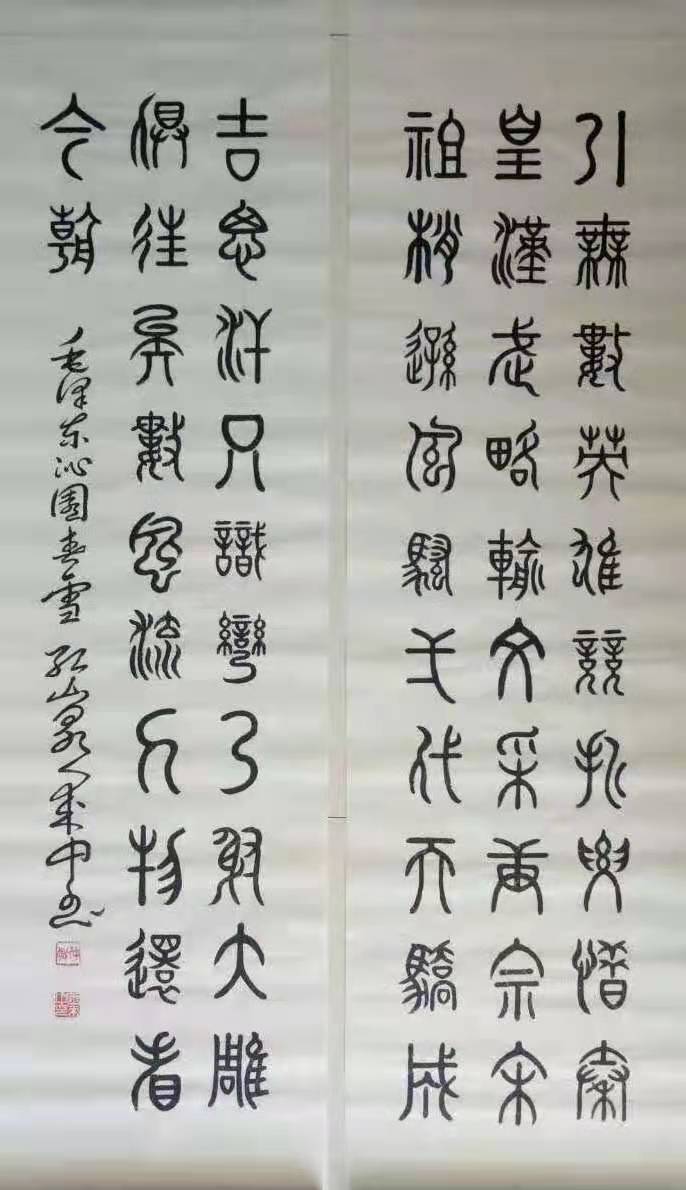 引無數英雄競折腰惜秦
皇漢武略輸文采唐宗宋
祖稍遜風騷弌代天驕成
吉思汗只識彎弓射大雕
俱往矣數風流人物還看
今朝
毛泽东沁園春雪 山泉人成中书